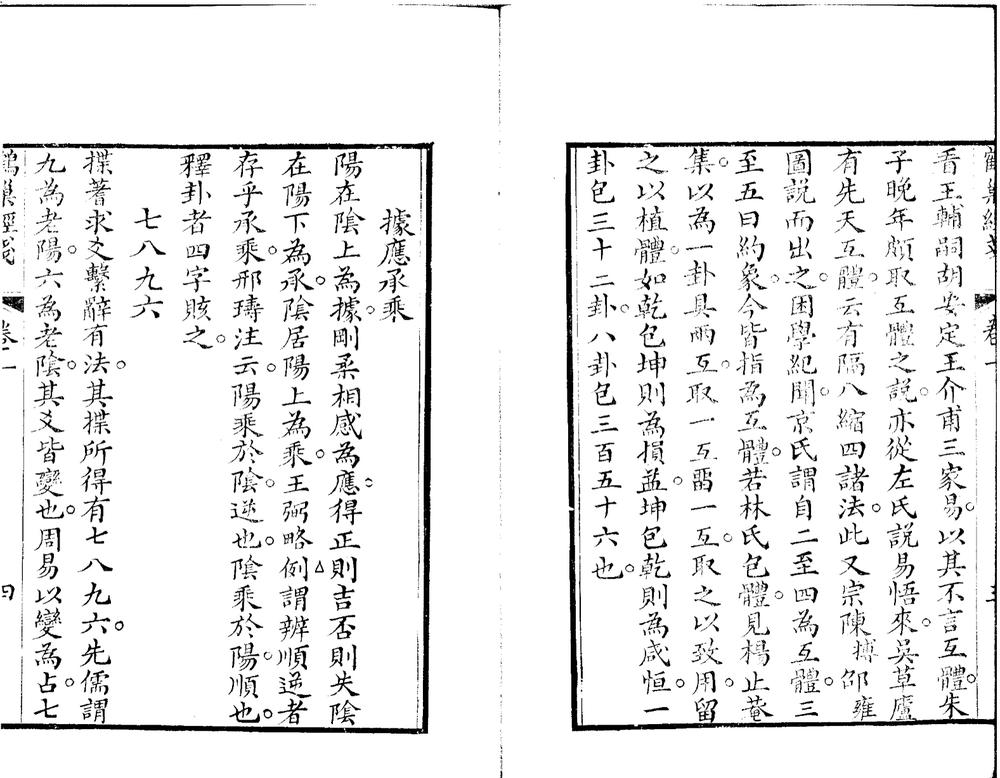 看王輔嗣胡安定王介甫三家易。以其不言互體。朱
子晚年頗取互體之說。亦從左氏說易悟來。吳草廬
有先天互體。云有隔八縮四諸法。此又宗陳摶邵雍
圖說而出之。困學紀聞。京氏謂自二至四為互體。三
至五曰約象。今皆指為互體。若林氏包體。見楊止菴
集。以為一卦具兩互。取一互畱一互。取之以致用。留
之以植體。如乾包坤則為損益。坤包乾則為咸恒。一
卦包三十二卦。八卦包三百五十六也。
據應承乘
陽在陰上為據。剛柔相感為應。得正則吉否則失陰
在陽下為承。陰居陽上為乘。王弼略例謂辨順逆者
存乎承乘。邢璹注云。陽乘於陰。逆也。陰乘於陽。順也。
釋卦者四字賅之。
七八九六
揲蓍求爻繫辭有法。其揲所得有七八九六。先儒謂
九為老陽。六為老陰。其爻皆變也。周易以變為占。七
卷一
四